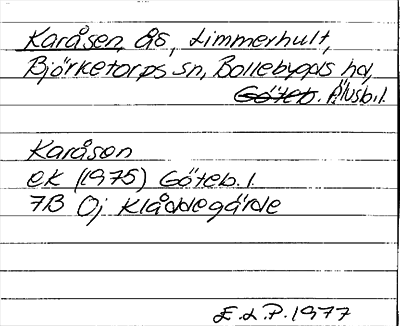 Karåsen, ås, Limmerhult,
Björketorps sn, Bollebygds hd,
Göteb. Älvsb.l.
Karåsen
ek (1975) Göteb. l.
7B Oj Klåddegärde
E.L.P. 1977